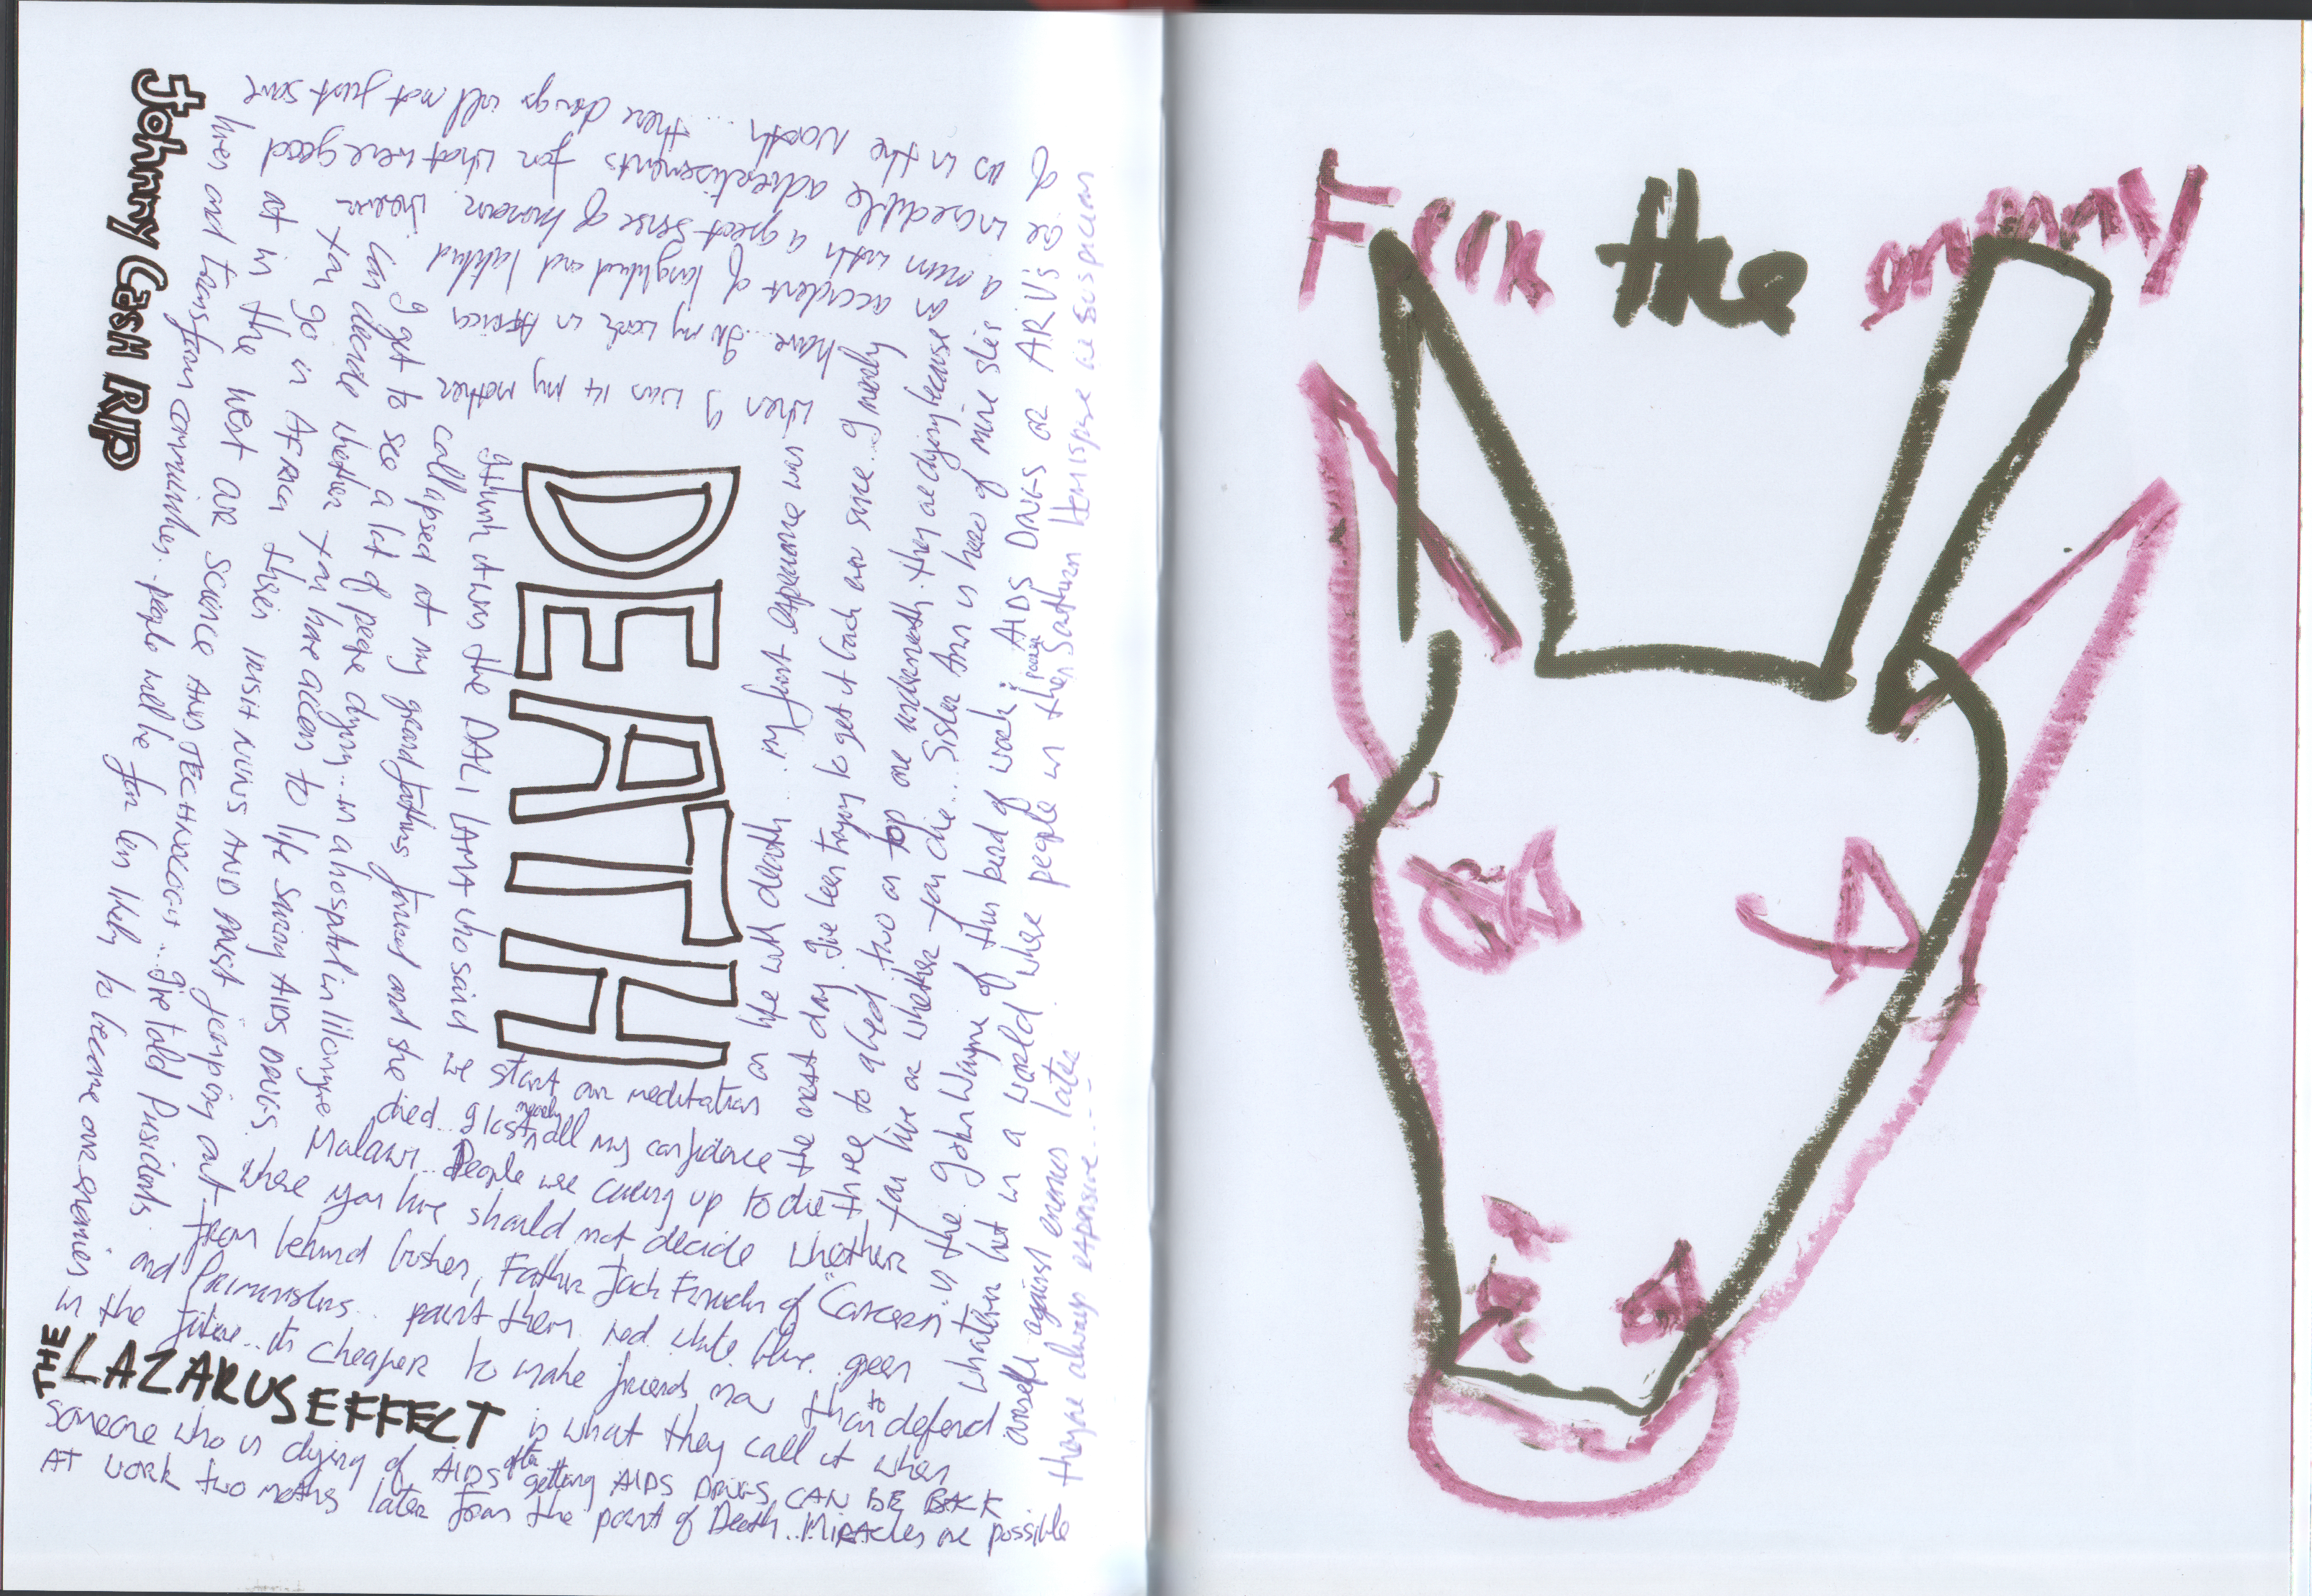 DEATH
I think it was the DALI LAMA who said we
start our meditation
on life with death... my first experience was
when I was 14 my mother
collapsed at my grandfathers funeral and she
died.. I lost nearly all my confidence
the next day. I've been trying to get it back ever since... I merely
have... In my work in AFRICA
I get to see a lot of people dying.. in a hospital in lilongwe
Malawi.. People were queuing up to die
three to a bed two on top one underneath. they are dying because of
accident of longitude and latitude
can decide whether you have access to life saving AIDS DRUGS.
where you live should not decide whether
you live or whether you die... Sister Ann is hero of mine she's
a nun with a great sense of humour.
you go in AFRICA NUNS AND priest jumping out
from behind bushes, Father Jack Finucan of "Concern"
is the John Wayne of this kind of work AIDS DRUGS or ARV's are
incredible advertisements for what were good
at in the west OR SCIENCE AND TECHNOLOGY... I've told Presidents
and Primministers.. paint them red white blue green
whatever but in a world where people in the Southurn Hemispere are suspicious
us in the North.... these drugs will not just save
lives and transform communities. people will be far less likely to become our enemies
in the future... its cheaper to make friends now than to defend
ourself against enemies later
theyre always expensive...
THE LAZARUS EFFECT is what they call it when
someone who is dying of AIDS after getting AIDS DRUGS CAN BE BACK
AT WORK two moths later from the point of Death.. MIRACLES are possible
Johnny CasH RIP
the